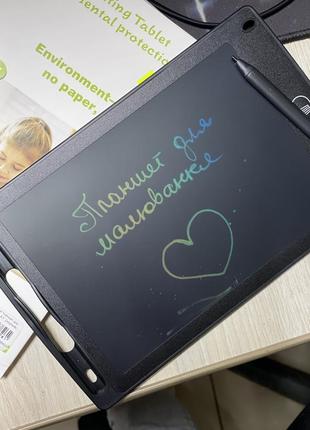 ting Tablet
ental protecti
Environment-
no paper,
Планшет для
малювання